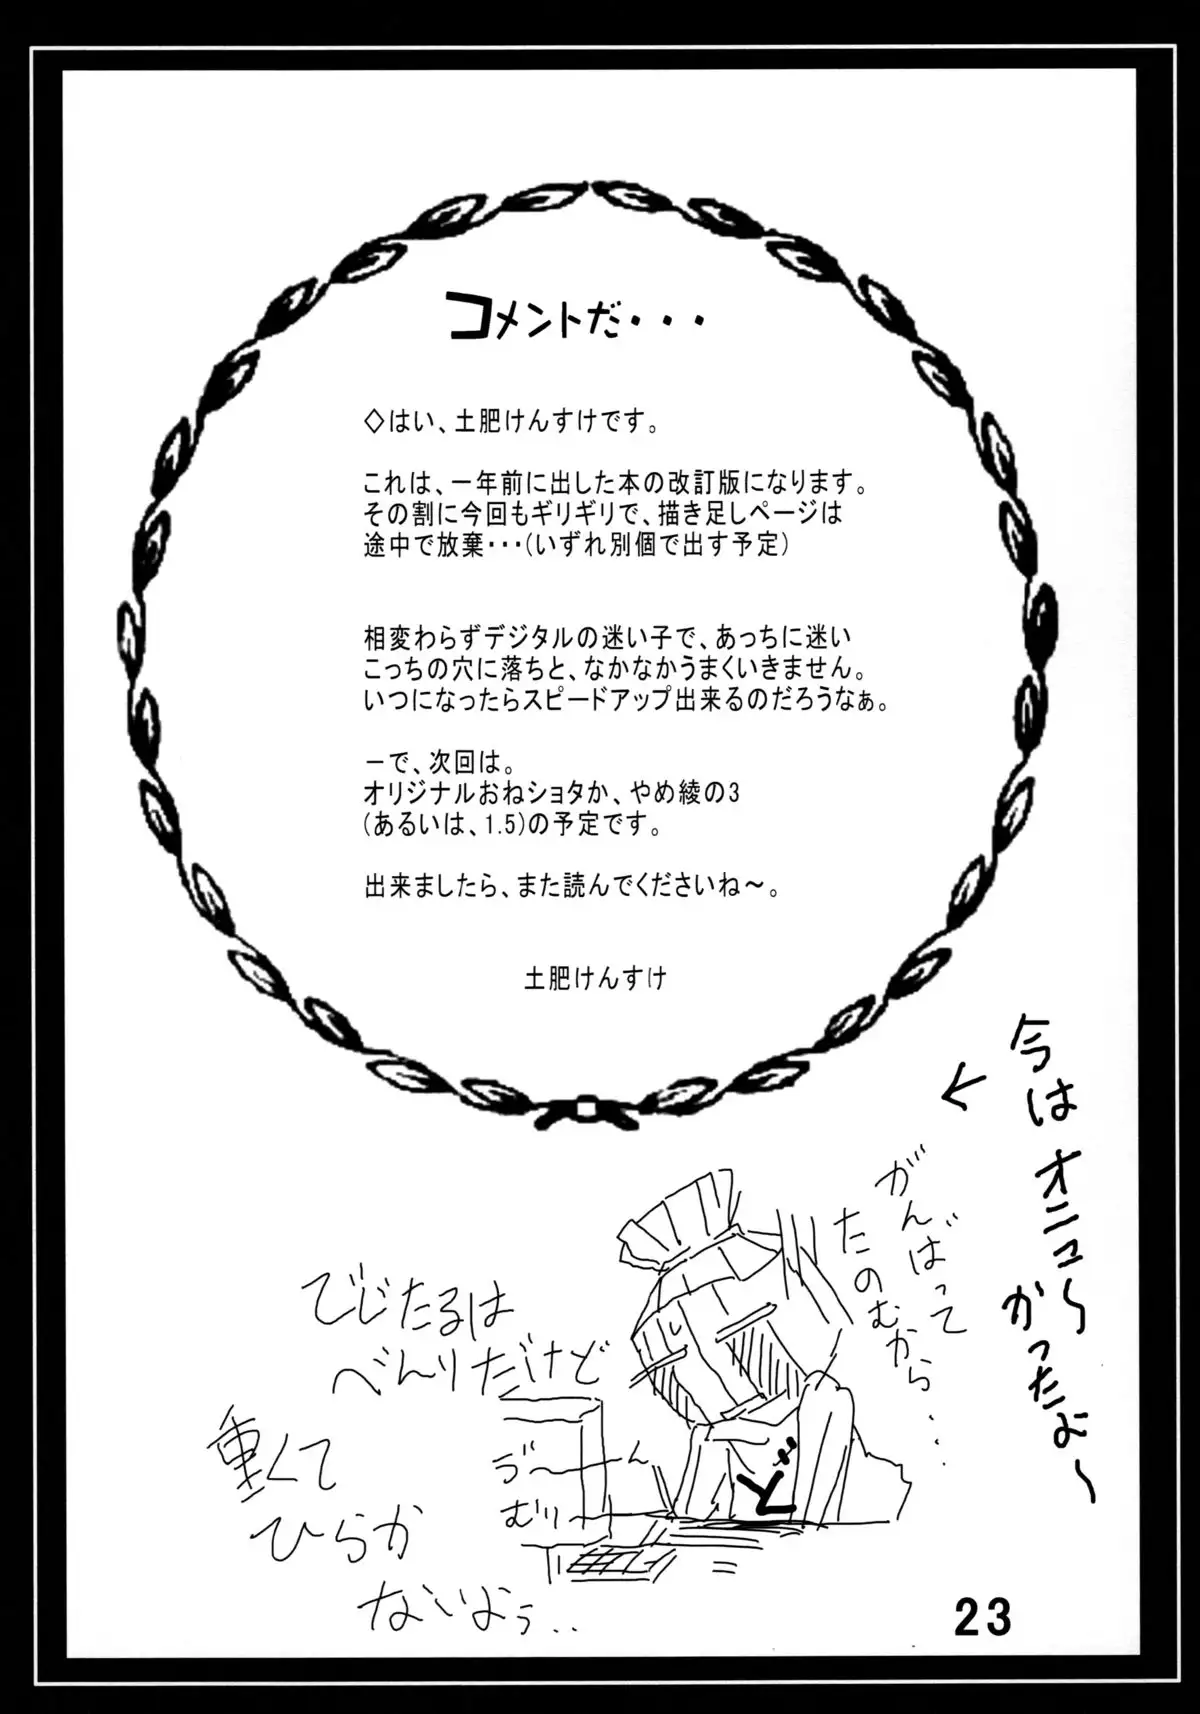 コメントだ・・・
◇はい、土肥けんすけです。
これは、一年前に出した本の改訂版になります。
その割に今回もギリギリで、描き足しページは
途中で放棄・・・(いずれ別個で出す予定)
相変わらずデジタルの迷い子で、あっちに迷い
こっちの穴に落ちと、なかなかうまくいきません。
いつになったらスピードアップ出来るのだろうなぁ。
－で、次回は。
オリジナルおねショタか、やめ綾の3
(あるいは、1.5)の予定です。
出来ましたら、また読んでくださいね～。
土肥けんすけ
今はオニューら
かったよ～
←
がんばって
たのむから・・・
でじたるは
べんりだけど
重くて
ひらか
ないよぅ・・
う～ん
むり～
ど
23